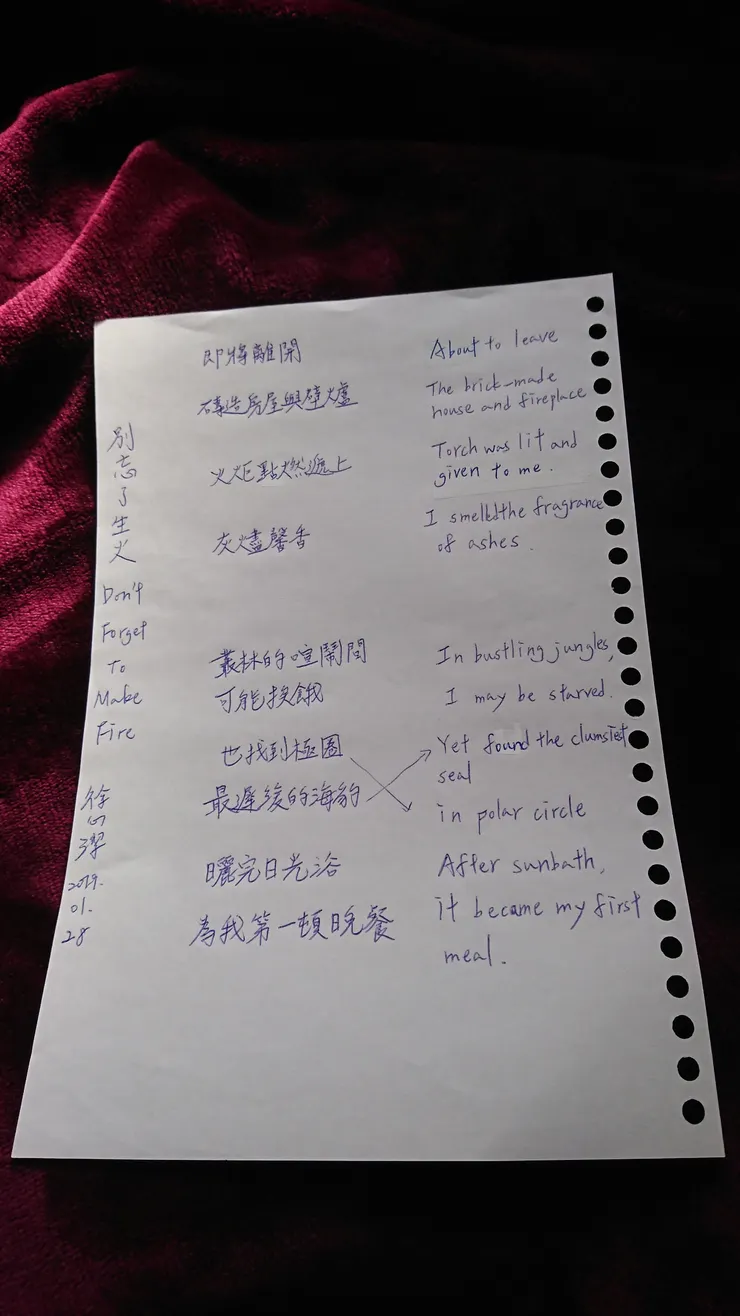 別忘了生火
Don't
Forget
To
Make
Fire
徐
2019.
01.
28
即將離開
磚造房屋與壁爐
火炬點燃遞上
灰燼馨香
叢林的喧鬧間
可能挨餓
也找到極圈
最遲緩的海豹
曬完日光浴
為我第一頓晚餐
About to leave
The brick-made
house and fireplace
Torch was lit and
given to me.
I smelled the fragrance
of ashes.
In bustling jungles,
I may be starved.
Yet found the clumsiest
seal
in polar circle
After sunbath,
it became my first
meal.